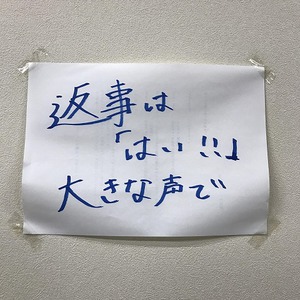 返事は
「はい!!」
大きな声で